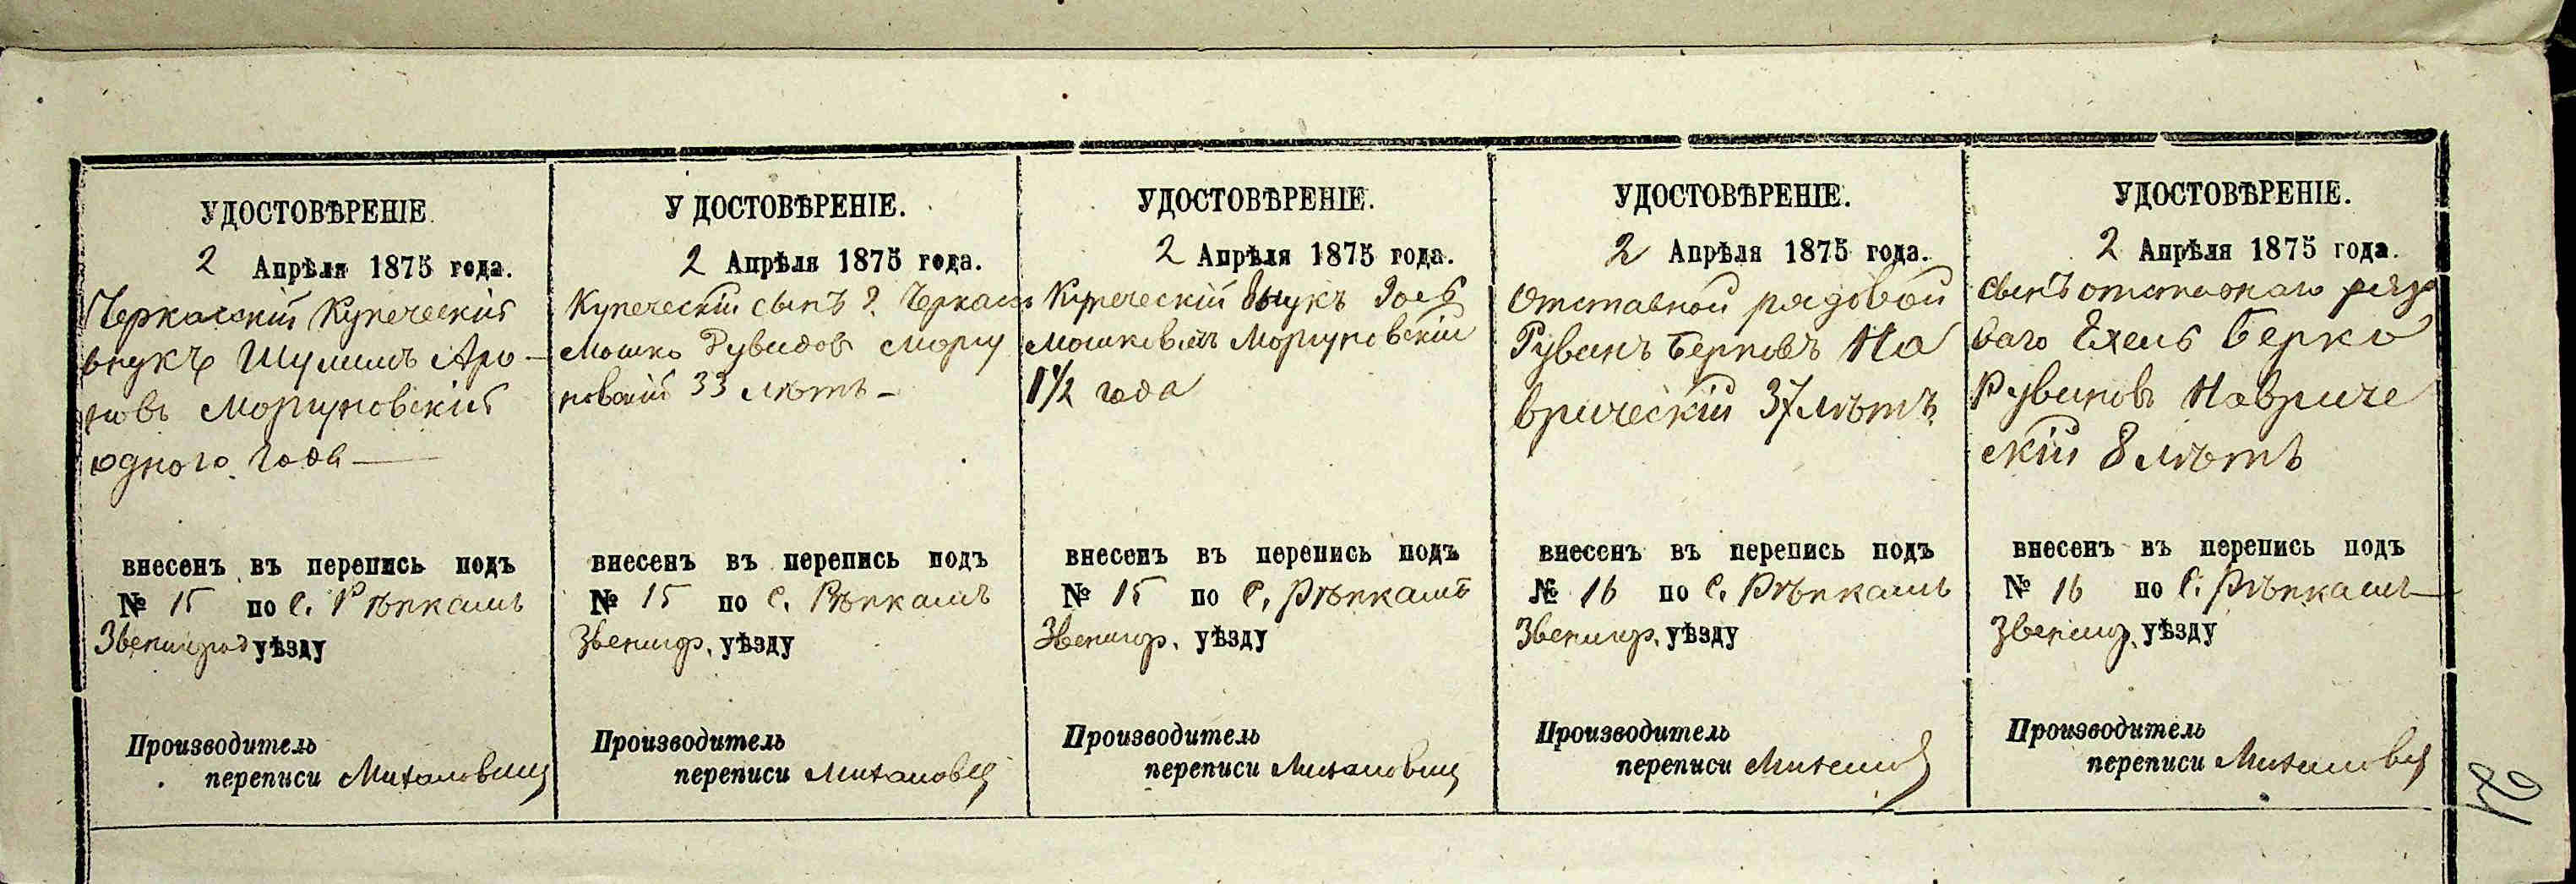 УДОСТОВѢРЕНІЕ.
2 Апрѣля 1875 года.
Черкасскій Купеческій
внукъ Шулимъ Аро-
новъ Моргуновскій
одного года —
внесенъ въ перепись подъ
№ 15 по с. Рѣпкамъ
Звенигород уѣзду
Производитель
переписи Михаловищ
УДОСТОВѢРЕНІЕ.
2 Апрѣля 1875 года.
Купеческій сынъ г. Черкасъ
Мошко Дувидов Моргу
новскій 33 лѣтъ —
внесенъ въ перепись подъ
№ 15 по с. Рѣпкамъ
Звенигр. уѣзду
Производитель
переписи
УДОСТОВѢРЕНІЕ.
2 Апрѣля 1875 года.
Купеческій внукъ
Мошковичъ Моргуновскій
1 1/2 года
внесенъ въ перепись подъ
№ 15 по с. Рѣпкамъ
Звенигр. уѣзду
Производитель
переписи
УДОСТОВѢРЕНІЕ.
2 Апрѣля 1875 года.
Отставной рядовой
Рувинъ Берковъ На
врическій 37 лѣтъ
внесенъ въ перепись подъ
№ 16 по с. Рѣпкамъ
Звенигр. уѣзду
Производитель
переписи
УДОСТОВѢРЕНІЕ.
2 Апрѣля 1875 года.
Сынъ отставнаго рядо
ваго Берко
Рувиновъ Навриче
скій 8 лѣтъ
внесенъ въ перепись подъ
№ 16 по с. Рѣпкамъ
Звенигр. уѣзду
Производитель
переписи